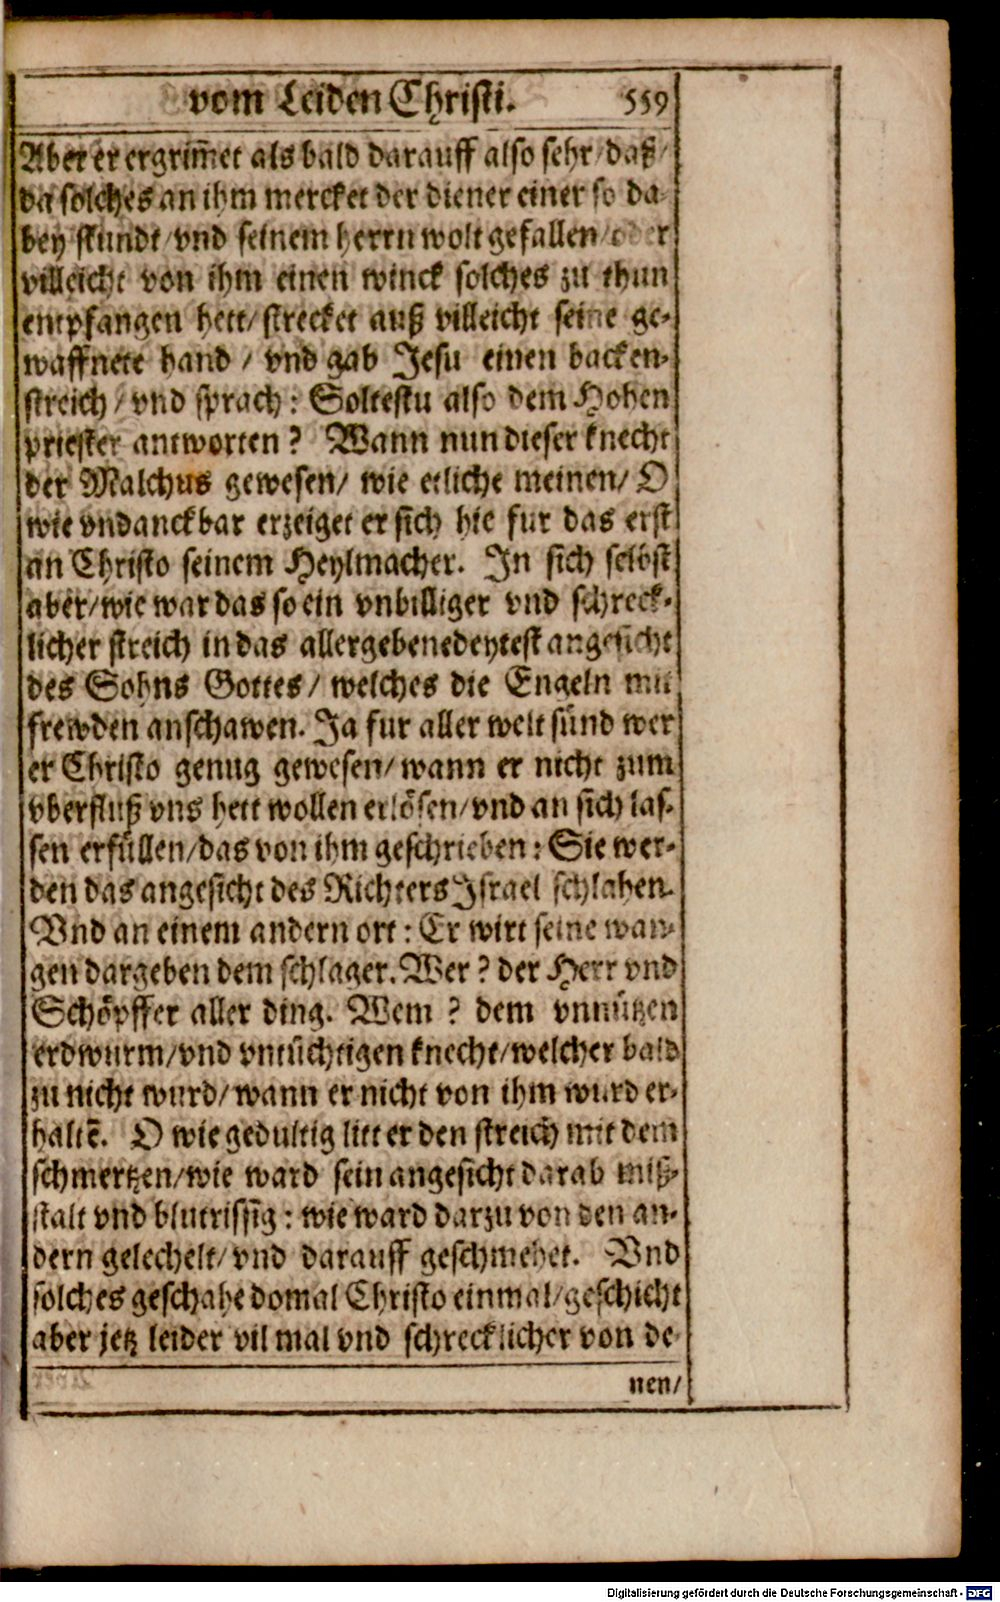 vom Leiden Christi. 559
Aber er ergrim̃et als bald darauff also sehr/daß/
da solches an ihm mercket der diener einer so da-
bey stundt/vnd seinem herrn wolt gefallen/oder
villeicht von ihm einen winck solches zu thun
empfangen hett/strecket auß villeicht seine ge-
waffnete hand / vnd gab Jesu einen backen-
streich/vnd sprach: Soltestu also dem Hohen
priester antworten? Wann nun dieser knecht
der Malchus gewesen/ wie etliche meinen/ O
wie vndanckbar erzeiget er sich hie fur das erst
an Christo seinem Heylmacher. In sich selbst
aber/wie war das so ein vnbilliger vnd schreck-
licher streich in das allergebenedeytest angesicht
des Sohns Gottes/ welches die Engeln mit
frewden anschawen. Ja fur aller welt sünd wer
er Christo genug gewesen/wann er nicht zum
vberfluß vns hett wollen erlösen/vnd an sich las-
sen erfüllen/das von ihm geschrieben: Sie wer-
den das angesicht des Richters Israel schlahen.
Vnd an einem andern ort: Er wirt seine wan-
gen dargeben dem schlager. Wer? der Herr vnd
Schöpffer aller ding. Wem? dem vnnützen
erdwurm/vnd vntüchtigen knecht/welcher bald
zu nicht wurd/wann er nicht von ihm wurd er-
haltẽ. O wie gedultig litt er den streich mit dem
schmertzen/wie ward sein angesicht darab miß-
stalt vnd blutrissig: wie ward darzu von den an-
dern gelechelt/vnd darauff geschmehet. Vnd
solches geschahe domal Christo einmal/geschicht
aber jetz leider vil mal vnd schrecklicher von de-
nen/
Digitalisierung gefördert durch die Deutsche Forschungsgemeinschaft - DFG